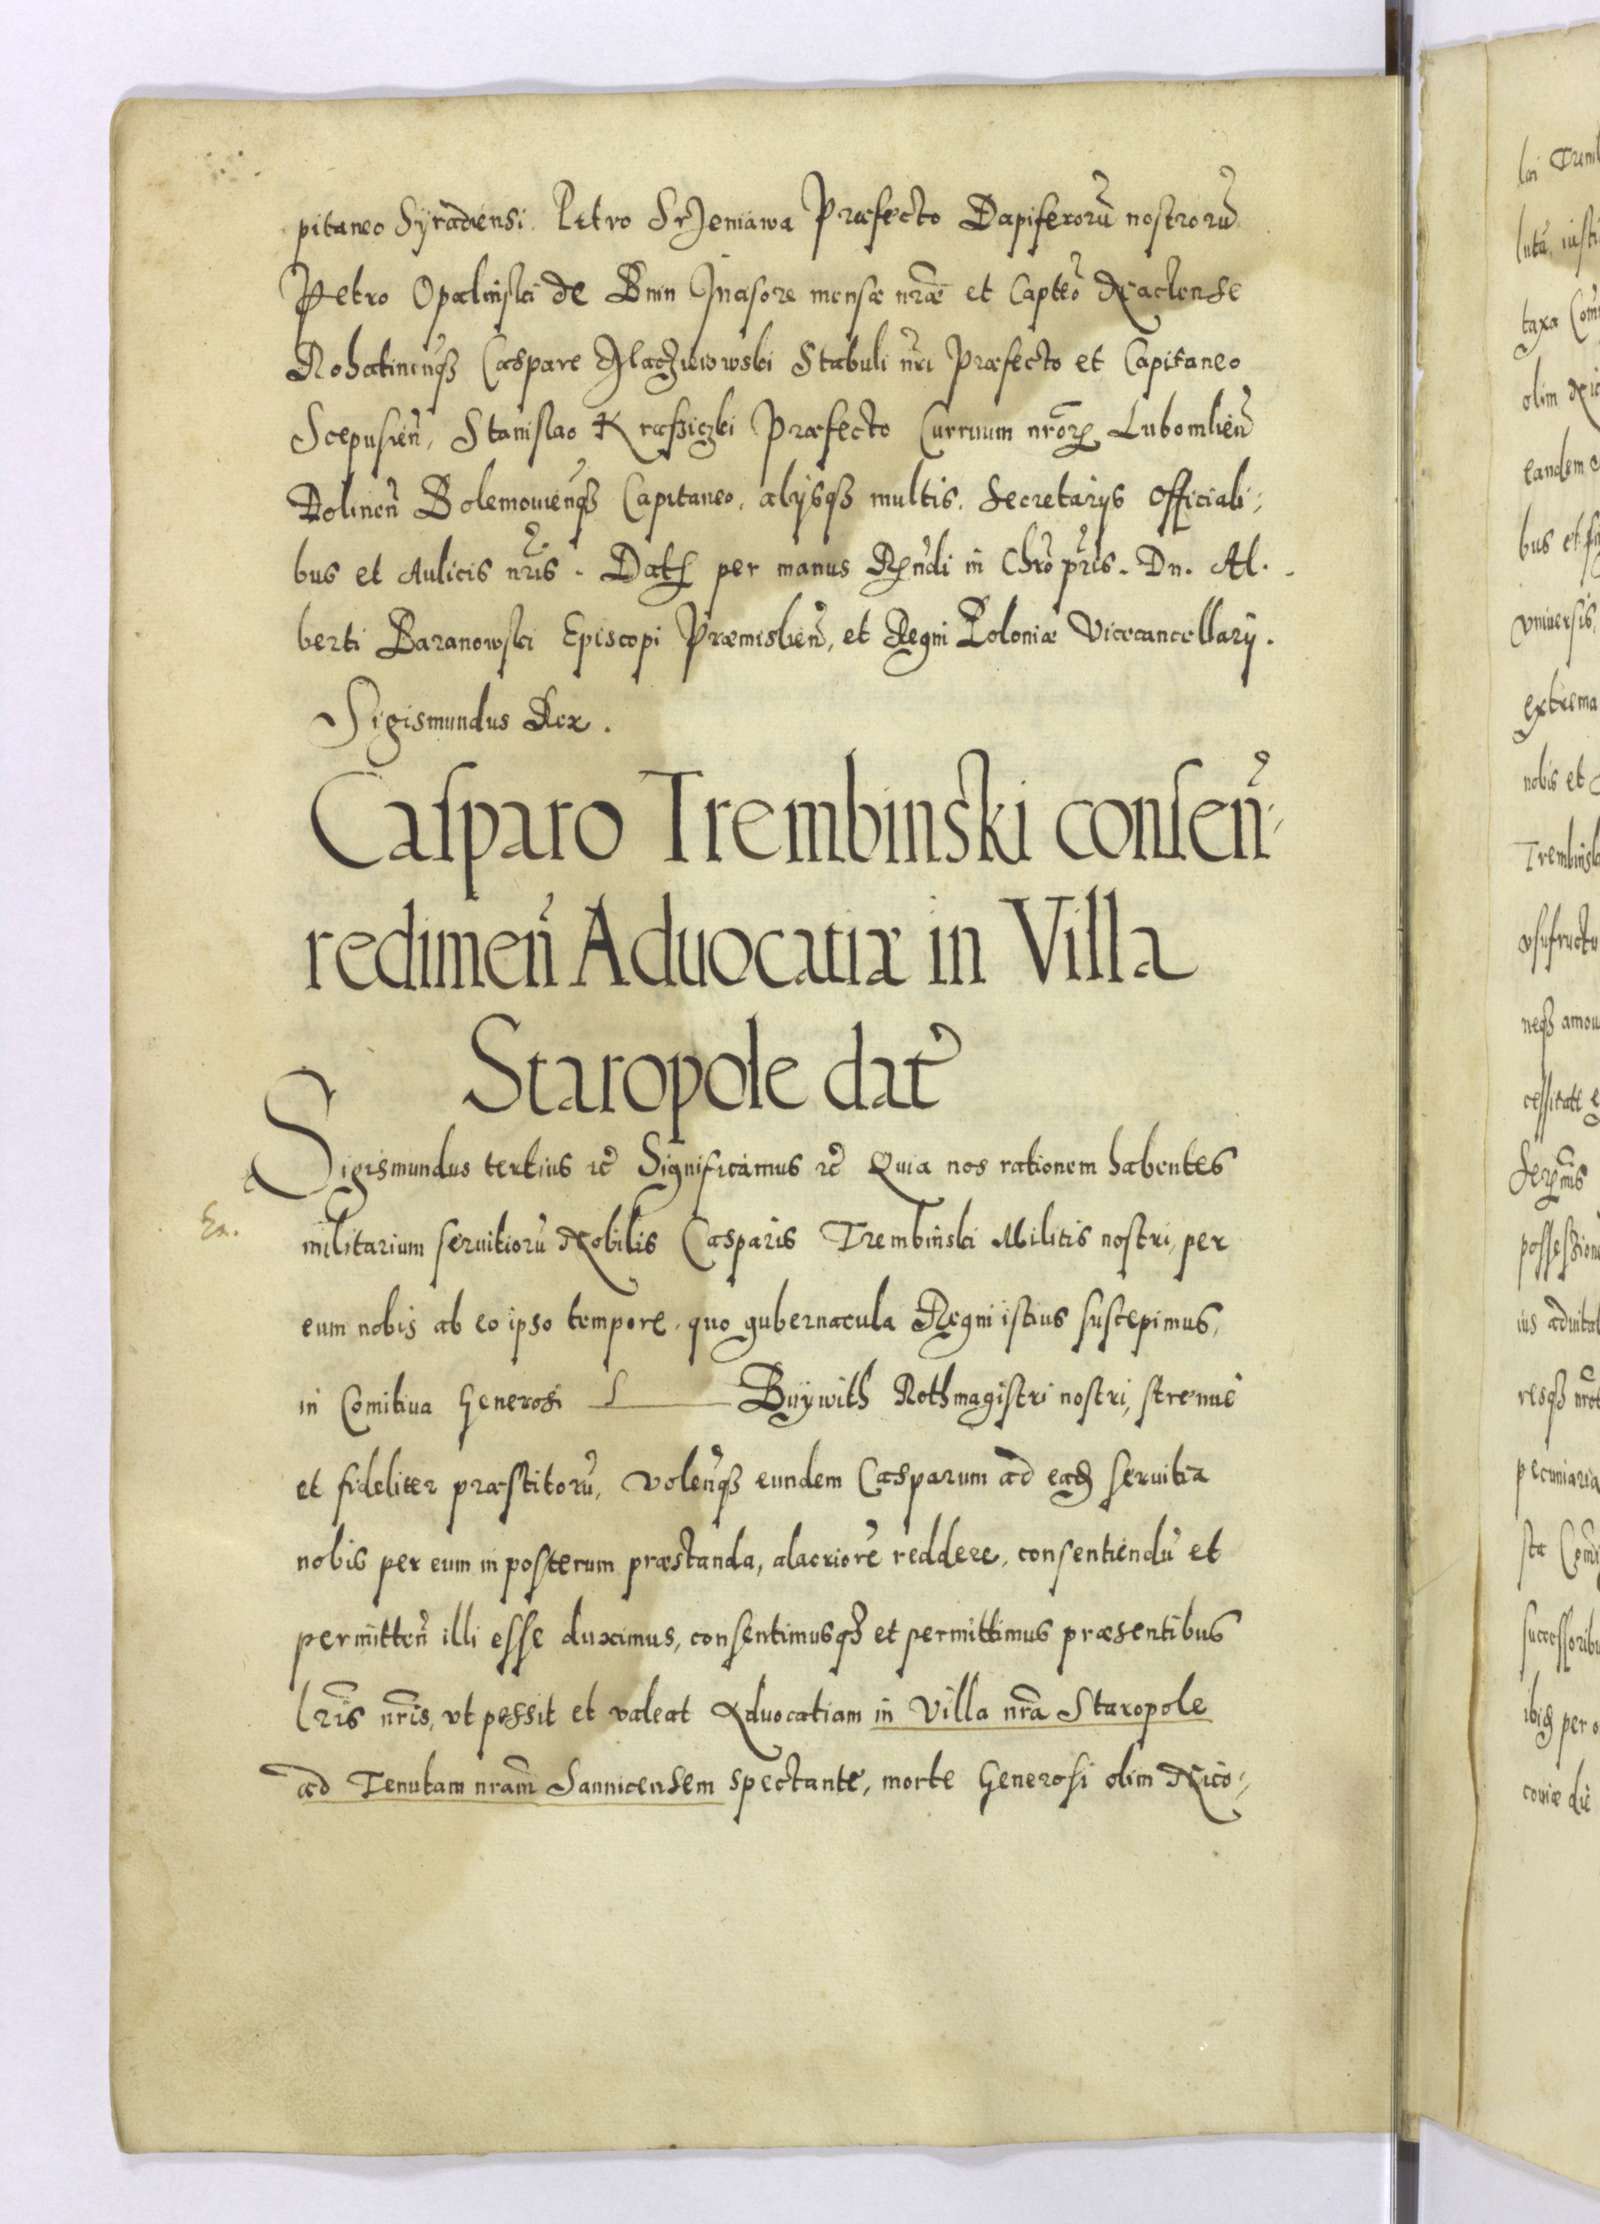 pitaneo Syradiensi. Petro Srzeniawa Præfecto Dapiferorū nostrorū
Petro Opaliński de Bnin Incisore mensæ nræ et Capteo Naclense
Rohatinenqȝ Caspare Maczieiowski Stabuli nri Præfecto et Capitaneo
Scepusien, Stanislao Krassiczki Præfecto Curruum nrorꝝ Lubomlien
Dolinen Bolemouienqȝ Capitaneo, alijsqȝ multis. Secretarijs Officiali-
bus et Aulicis nris. Dat per manus Rndi in Chro pris. Dn. Al-
berti Baranowski Episcopi Præmislien, et Regni Poloniæ Vicecancellarij.
Sigismundus Rex.
Casparo Trembinski consen
redimen Aduocatiæ in Villa
Staropole dat
Sigismundus tertius ꝛc Significamus ꝛc Quia nos rationem habentes
Ex.
militarium seruitiorū Nobilis Casparis Trembiński Militis nostri, per
eum nobis ab eo ipso tempore, quo gubernacula Regni istius suscepimus,
in Comitiua Generosi L Buywith Rothmagistri nostri, strenuè
et fideliter præstitorū, volenqȝ eundem Casparum ad eaꝗ seruitia
nobis per eum in posterum præstanda, alacriorē reddere, consentiendū et
permitten illi esse duximus, consentimusqȝ et permittimus præsentibus
lris nris, vt possit et valeat Aduocatiam in Villa nra Staropole
ad Tenutam nram Sannicensem spectante, morte Generosi olim Nico-
lai
taxa
olim
eandem
bus et
vniuersis,
extrema
nobis et
vsufructu
possession
pecuniaria
successoribu